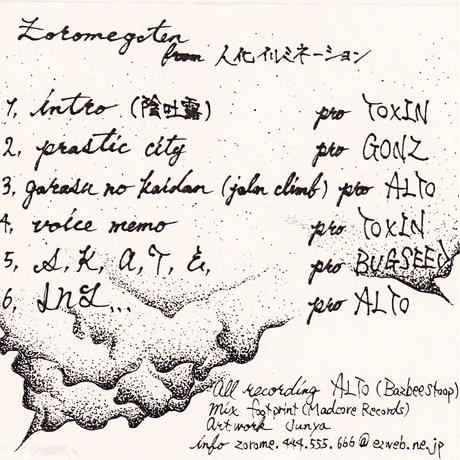 Zoromegoten
from 人化イルミネーション
1, intro (陰吐露) pro TOXIN
2, prastic city pro GONZ
3, garasu no kaidan (joln climb) pro ALTO
4, voice memo pro TOXIN
5, S, K, A, T, E, pro BUGSEED
6, InL... pro ALTO
All recording ALTO (Bazbeestoop)
Mix footprint (Madcore Records)
Artwork Junya
info zorome.444.555.666@ezweb.ne.jp